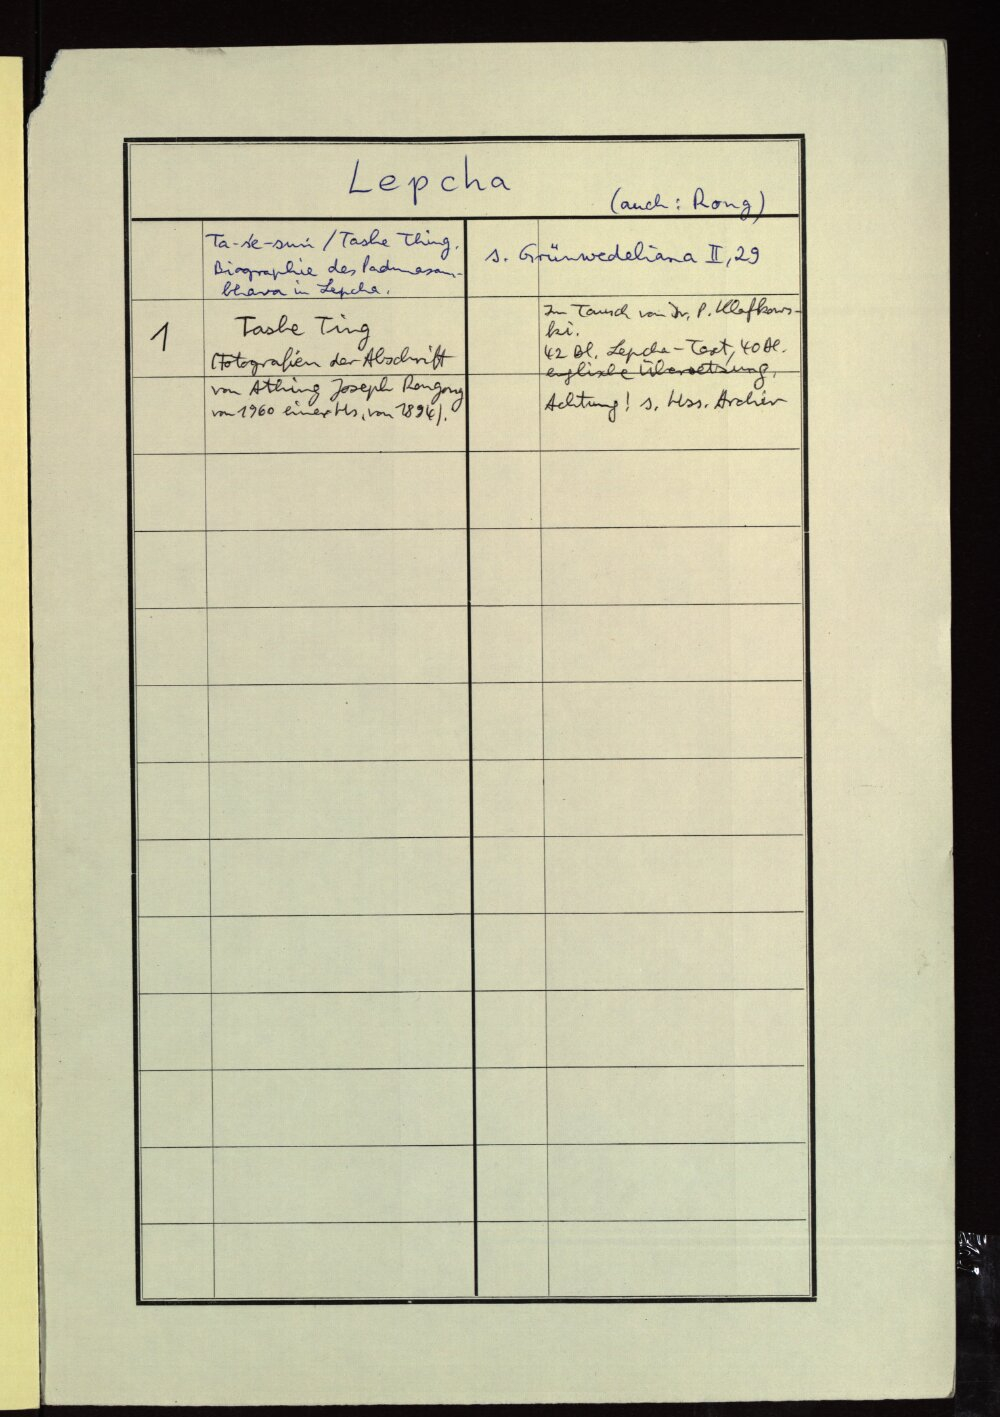 Lepcha
(auch: Rong)
Ta-še-suṅ / Tashe Thing.
Biographie des Padmasam-
bhava in Lepcha.
s. Grünwedeliana II, 29
1
Tashe Ting
(Fotografien der Abschrift
von Athing Joseph Rongong
von 1960 einer Hs. von 1894).
Im Tausch von Dr. P. Klafkows-
ki.
42 Bl. Lepcha-Text, 40 Bl.
englische Übersetzung.
Achtung! s. Hss. Archiv